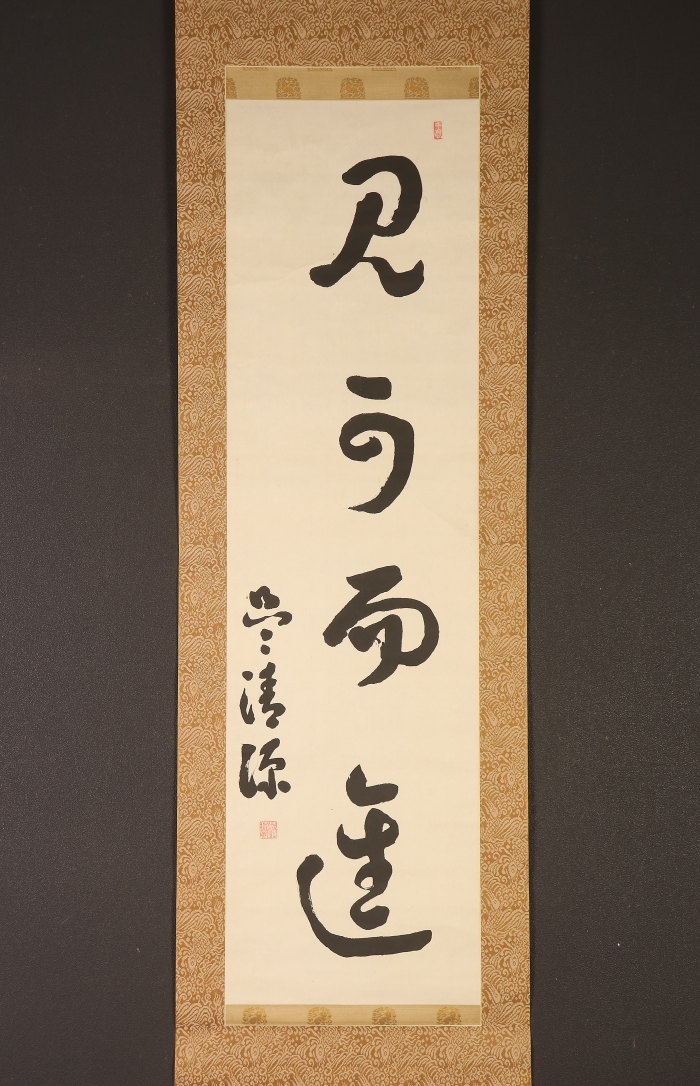 見可而進
呉清源